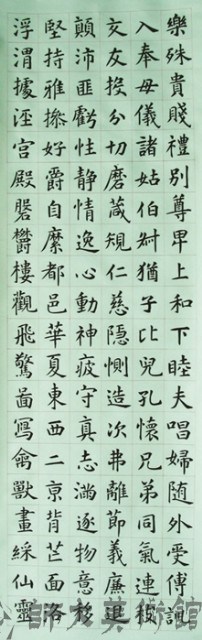 樂殊貴賤禮別尊卑上和下睦夫唱婦随外受傅訓
入奉母儀諸姑伯叔猶子比兒孔懷兄弟同氣連枝
交友投分切磨箴規仁慈隱惻造次弗離節義廉退
顛沛匪虧性静情逸心動神疲守真志滿逐物意移
堅持雅操好爵自縻都邑華夏東西二京背芒面洛
浮渭據涇宮殿盤鬱樓觀飛驚啚寫禽獸畫綵仙靈
美術館